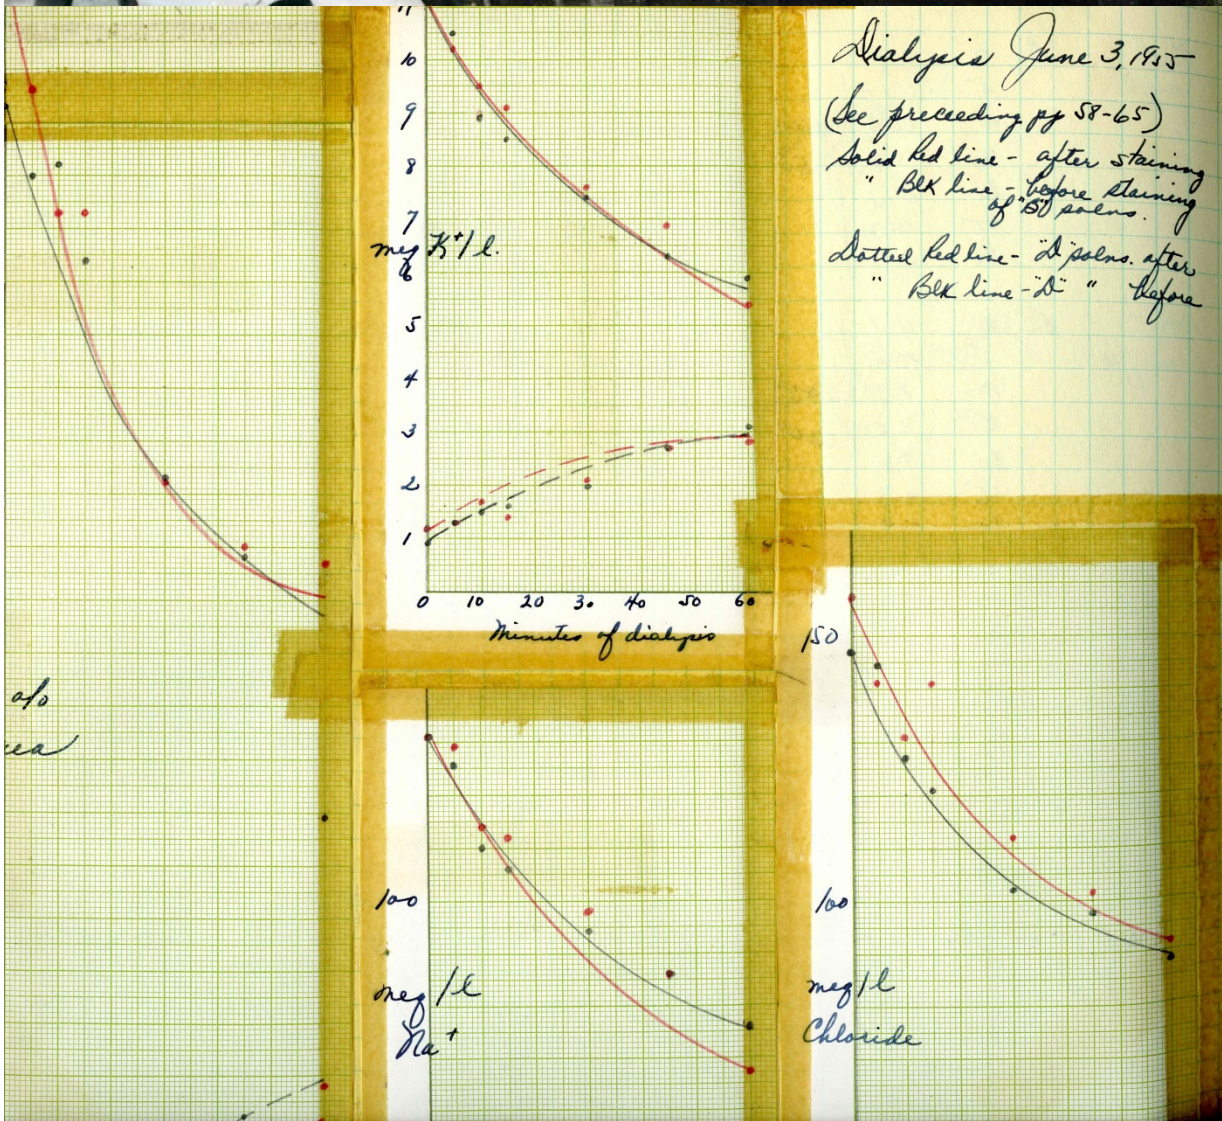 Dialysis June 3, 1955
(See preceeding pp 58-65)
Solid Red line - after staining
" Blk line - before staining
of "B" solns.
Dotted Red line - "D" solns. after
" Blk line - "D" " before
11
10
9
8
7
meq K+/l.
6
5
4
3
2
1
0 10 20 30 40 50 60
Minutes of dialysis
150
100
meq/l
Chloride
100
meq/l
Na+